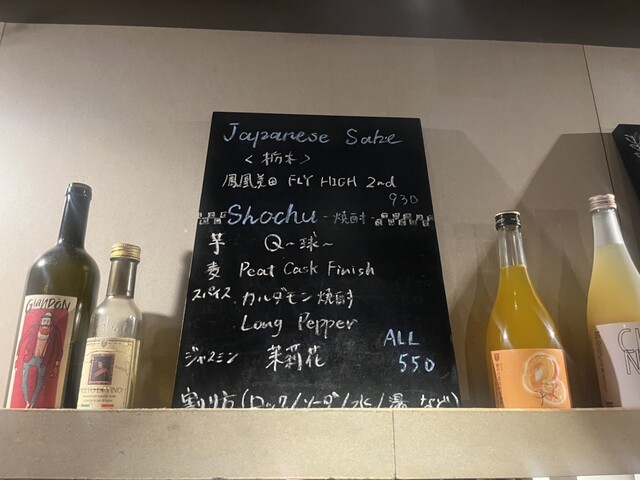 Japanese Sake
<栃木>
鳳凰美田 FLY HIGH 2nd
930
Shochu -焼酎-
芋 Q~球~
麦 Peat Cask Finish
スパイス カルダモン焼酎
Long Pepper
ALL
ジャスミン 茉莉花 550
割り方(ロック/ソーダ/水/湯 など)
GLANDON